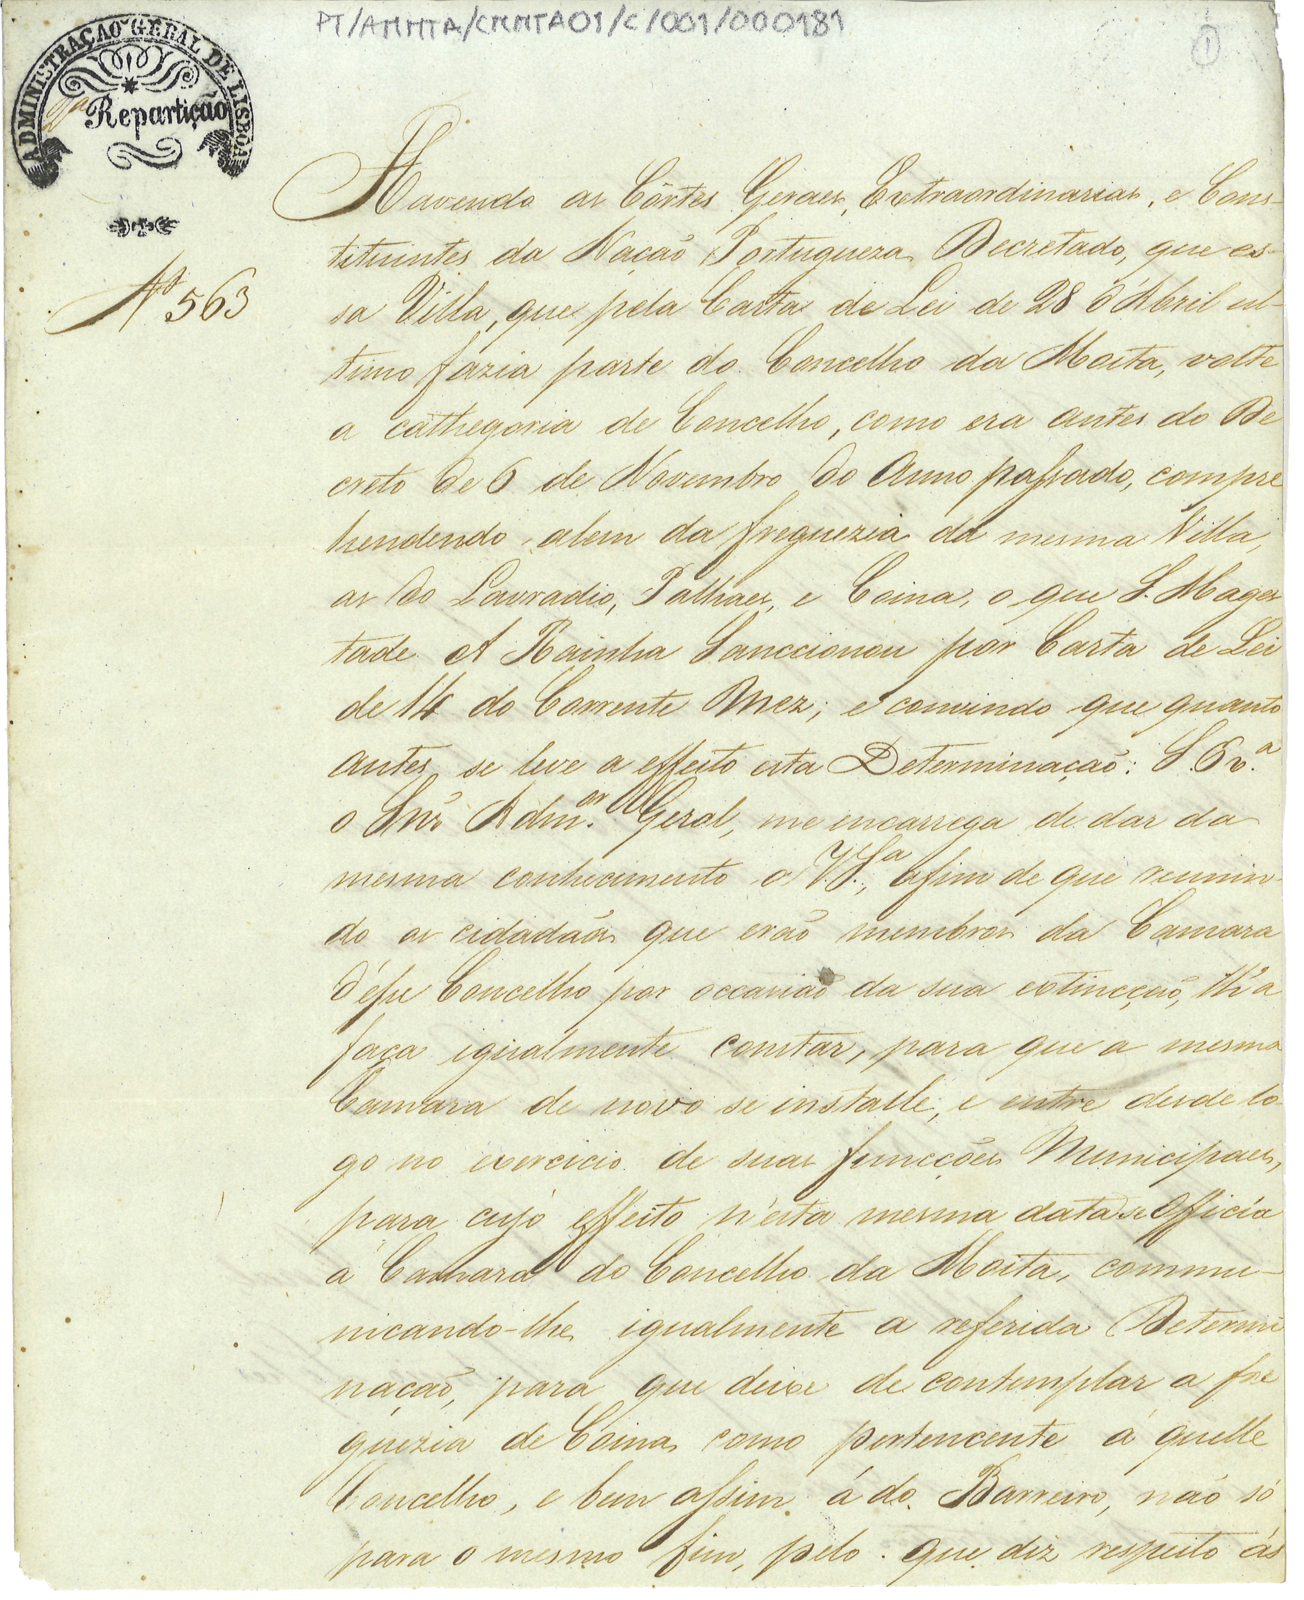 PT/AMMTA/CMMTA01/C/001/000181
1
ADMINISTRAÇÃO GERAL DE LISBOA
2ª Repartição
Nº 563
Havendo as Côrtes Geraes, Extraordinarias, e Cons-
tituintes da Nação Portugueza Decretado, que es-
sa Villa, que pela Carta de Lei de 28 d'Abril ul-
timo fazia parte do Concelho da Moita, volte
a cathegoria de Concelho, como era antes do De
creto de 6 de Novembro do Anno passado, compre
hendendo alem da freguezia da mesma Villa,
as do Lavradio, Palhaes, e Coina, o que S. Mages
tade A Rainha Sanccionou por Carta de Lei
de 14 do Corrente Mez; e convindo que quanto
antes se leve a effeito esta Determinação: S. Exª
o Snr Admor Geral, me encarrega de dar da
mesma conhecimento a V. Sª, afim de que reunin-
do os cidadãos que erão membros da Camara
d'esse Concelho por occasião da sua extincção, lh'a
faça igualmente constar, para que a mesma
Camara de novo se installe, e entre desde lo-
go no exercicio de suas funcções Municipaes,
para cujo effeito n'esta mesma data se officia
á Camara do Concelho da Moita, commu-
nicando-lhe igualmente a referida Determi
nação, para que deixe de contemplar a fre
guezia de Coina como pertencente á quelle
Concelho, e bem assim á do Barreiro, não só
para o mesmo fim, pelo que diz respeito ás